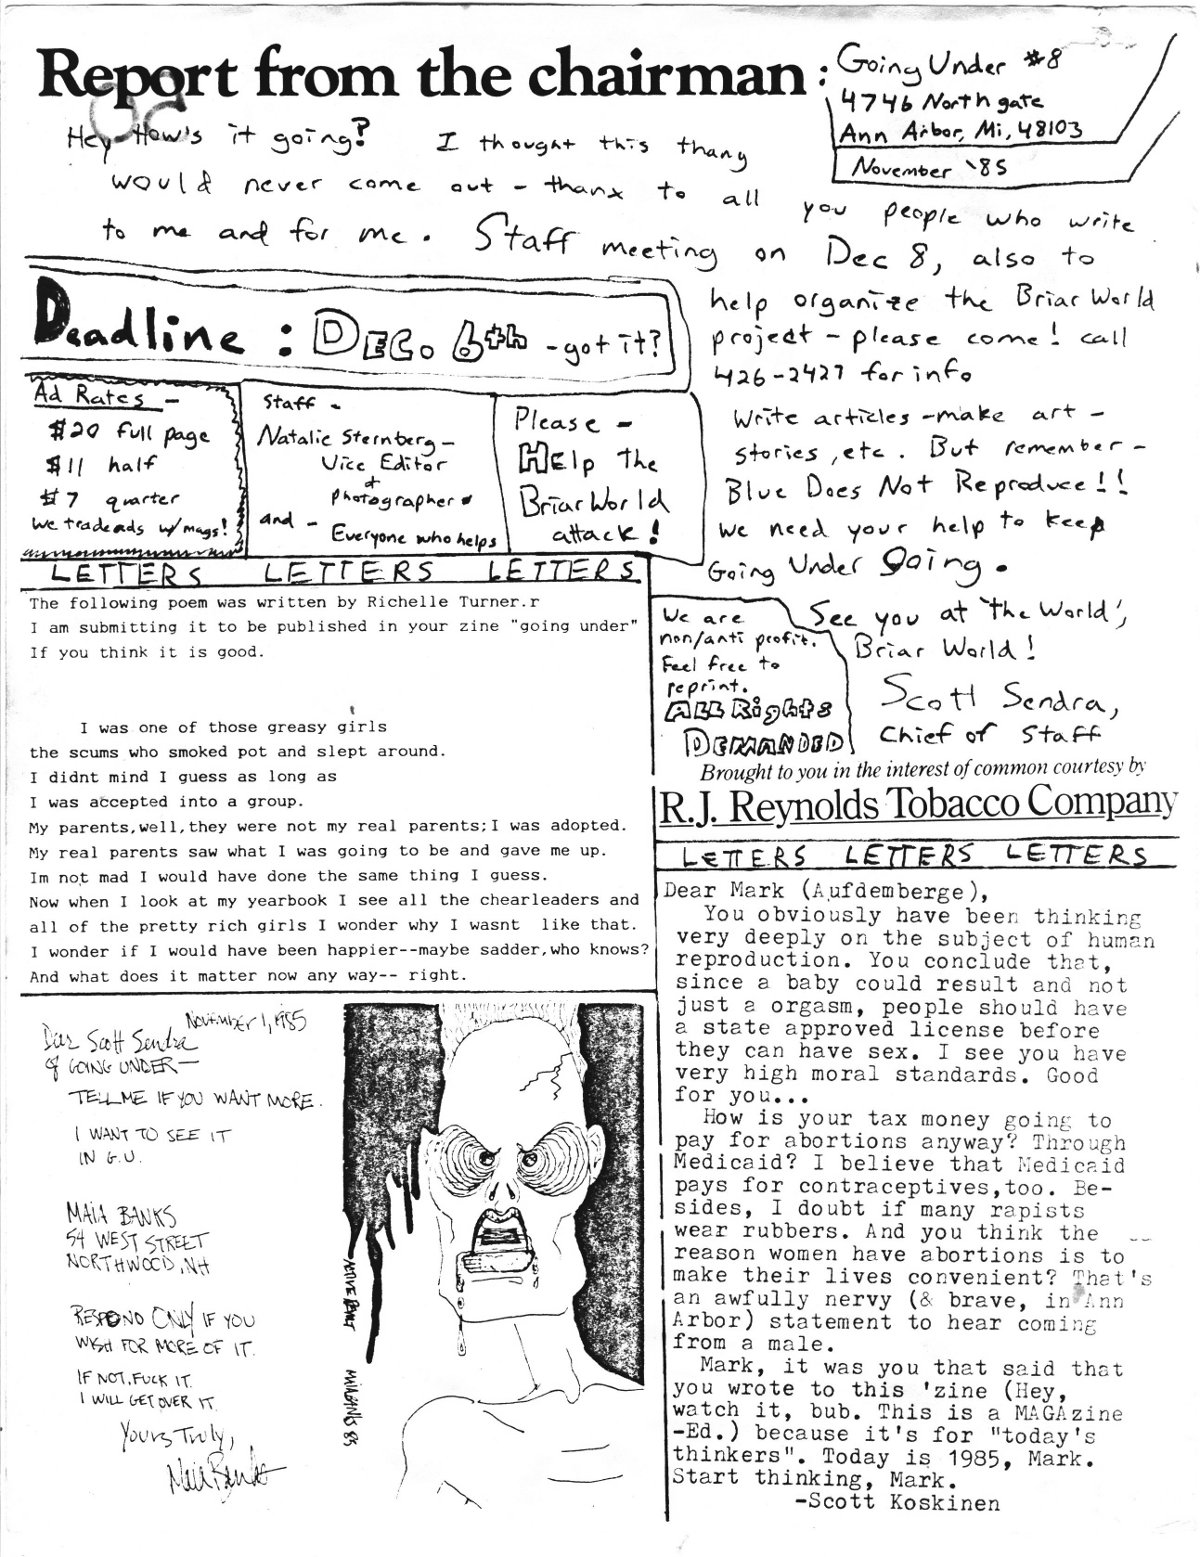 Report from the chairman:
Going Under #8
4746 Northgate
Ann Arbor, Mi, 48103
November '85
Hey How's it going? I thought this thang
would never come out - thanx to all you people who write
to me and for me. Staff meeting on Dec 8, also to
help organize the Briar World
project - please come! call
426-2427 for info
Write articles - make art -
stories, etc. But remember -
Blue Does Not Reproduce!!
We need your help to keep
Going Under Going.
See you at 'the World',
Briar World!
Scott Sendra,
Chief of Staff
Deadline: Dec. 6th - got it?
Ad Rates -
$20 full page
$11 half
$7 quarter
We trade ads w/mags!
Staff -
Natalie Sternberg -
Vice Editor
+
Photographer
and -
Everyone who helps
Please -
Help the
Briar World
attack!
We are
non/anti profit.
Feel free to
reprint.
All Rights
Demanded
Brought to you in the interest of common courtesy by
R.J. Reynolds Tobacco Company
LETTERS LETTERS LETTERS
The following poem was written by Richelle Turner.r
I am submitting it to be published in your zine "going under"
If you think it is good.
I was one of those greasy girls
the scums who smoked pot and slept around.
I didnt mind I guess as long as
I was accepted into a group.
My parents,well,they were not my real parents;I was adopted.
My real parents saw what I was going to be and gave me up.
Im not mad I would have done the same thing I guess.
Now when I look at my yearbook I see all the chearleaders and
all of the pretty rich girls I wonder why I wasnt like that.
I wonder if I would have been happier--maybe sadder,who knows?
And what does it matter now any way-- right.
November 1, 1985
Dear Scott Sendra
of GOING UNDER—
TELL ME IF YOU WANT MORE.
I WANT TO SEE IT
IN G.U.
MAIA BANKS
54 WEST STREET
NORTHWOOD, NH
RESPOND ONLY IF YOU
WISH FOR MORE OF IT.
IF NOT, FUCK IT.
I WILL GET OVER IT.
Yours Truly,
Maia Banks
MAIA BANKS 85
LETTERS LETTERS LETTERS
Dear Mark (Aufdemberge),
You obviously have been thinking
very deeply on the subject of human
reproduction. You conclude that,
since a baby could result and not
just a orgasm, people should have
a state approved license before
they can have sex. I see you have
very high moral standards. Good
for you...
How is your tax money going to
pay for abortions anyway? Through
Medicaid? I believe that Medicaid
pays for contraceptives,too. Be-
sides, I doubt if many rapists
wear rubbers. And you think the
reason women have abortions is to
make their lives convenient? That's
an awfully nervy (& brave, in Ann
Arbor) statement to hear coming
from a male.
Mark, it was you that said that
you wrote to this 'zine (Hey,
watch it, bub. This is a MAGAzine
-Ed.) because it's for "today's
thinkers". Today is 1985, Mark.
Start thinking, Mark.
-Scott Koskinen